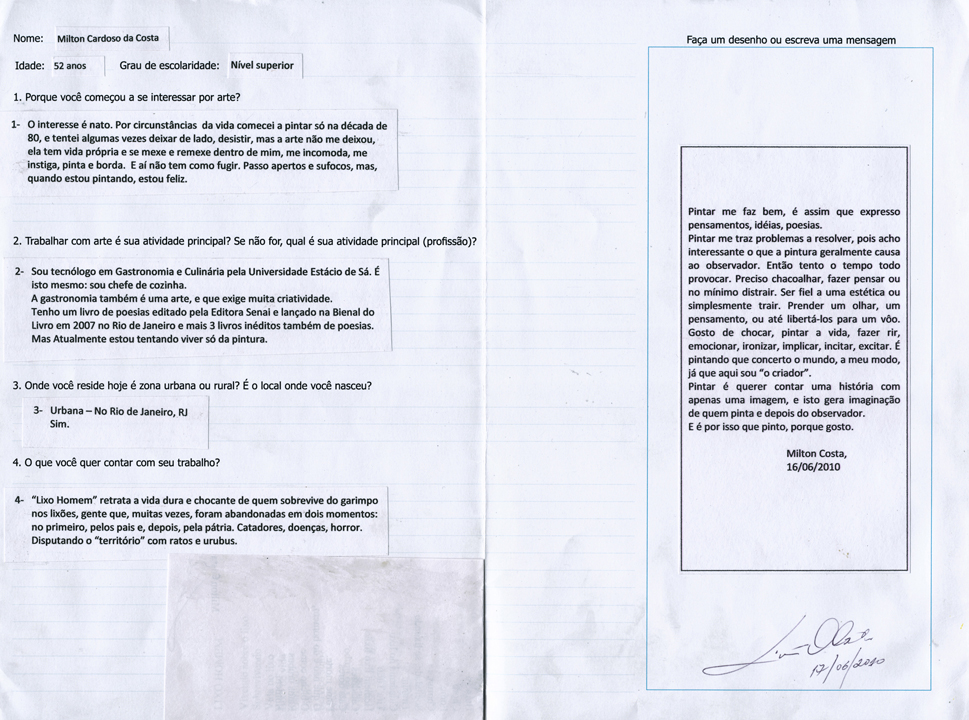 Nome: Milton Cardoso da Costa
Idade: 52 anos Grau de escolaridade: Nível superior
1. Porque você começou a se interessar por arte?
1- O interesse é nato. Por circunstâncias da vida comecei a pintar só na década de
80, e tentei algumas vezes deixar de lado, desistir, mas a arte não me deixou,
ela tem vida própria e se mexe e remexe dentro de mim, me incomoda, me
instiga, pinta e borda. E aí não tem como fugir. Passo apertos e sufocos, mas,
quando estou pintando, estou feliz.
2. Trabalhar com arte é sua atividade principal? Se não for, qual é sua atividade principal (profissão)?
2- Sou tecnólogo em Gastronomia e Culinária pela Universidade Estácio de Sá. É
isto mesmo: sou chefe de cozinha.
A gastronomia também é uma arte, e que exige muita criatividade.
Tenho um livro de poesias editado pela Editora Senai e lançado na Bienal do
Livro em 2007 no Rio de Janeiro e mais 3 livros inéditos também de poesias.
Mas Atualmente estou tentando viver só da pintura.
3. Onde você reside hoje é zona urbana ou rural? É o local onde você nasceu?
3- Urbana – No Rio de Janeiro, RJ
Sim.
4. O que você quer contar com seu trabalho?
4- "Lixo Homem" retrata a vida dura e chocante de quem sobrevive do garimpo
nos lixões, gente que, muitas vezes, foram abandonadas em dois momentos:
no primeiro, pelos pais e, depois, pela pátria. Catadores, doenças, horror.
Disputando o "território" com ratos e urubus.
Faça um desenho ou escreva uma mensagem
Pintar me faz bem, é assim que expresso
pensamentos, idéias, poesias.
Pintar me traz problemas a resolver, pois acho
interessante o que a pintura geralmente causa
ao observador. Então tento o tempo todo
provocar. Preciso chacoalhar, fazer pensar ou
no mínimo distrair. Ser fiel a uma estética ou
simplesmente trair. Prender um olhar, um
pensamento, ou até libertá-los para um vôo.
Gosto de chocar, pintar a vida, fazer rir,
emocionar, ironizar, implicar, incitar, excitar. É
pintando que concerto o mundo, a meu modo,
já que aqui sou "o criador".
Pintar é querer contar uma história com
apenas uma imagem, e isto gera imaginação
de quem pinta e depois do observador.
E é por isso que pinto, porque gosto.
Milton Costa,
16/06/2010
17/06/2010